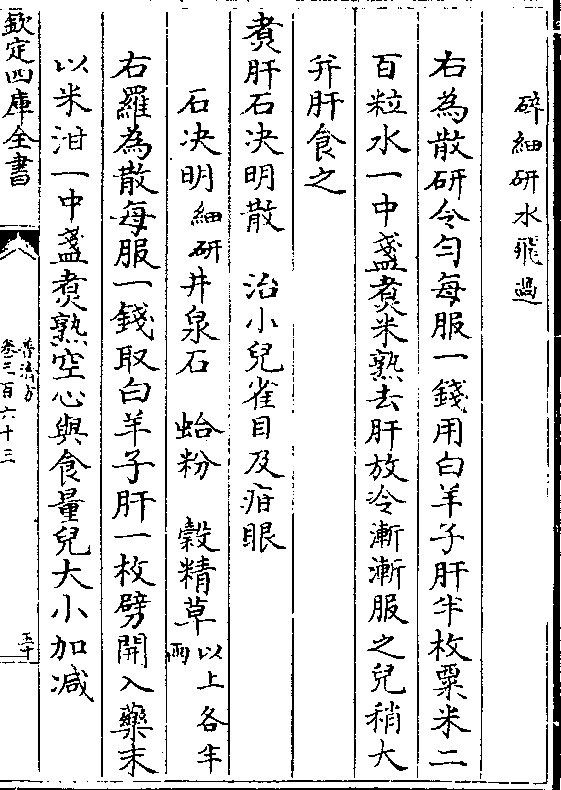 碎細研水飛過
右為散研令勻每服一錢用白羊子肝半枚粟米二
百粒水一中盞煑米熟去肝放冷漸漸服之兒稍大
并肝食之
煑肝石决明散　治小兒雀目及疳眼
石决明細研井泉石　蛤粉　榖精草以上各半兩
右羅為散每服一錢取白羊子肝一枚劈開入藥末
以米泔一中盞煑熟空心與食量兒大小加减
欽定四庫全書
普濟方
卷三百六十三
五十